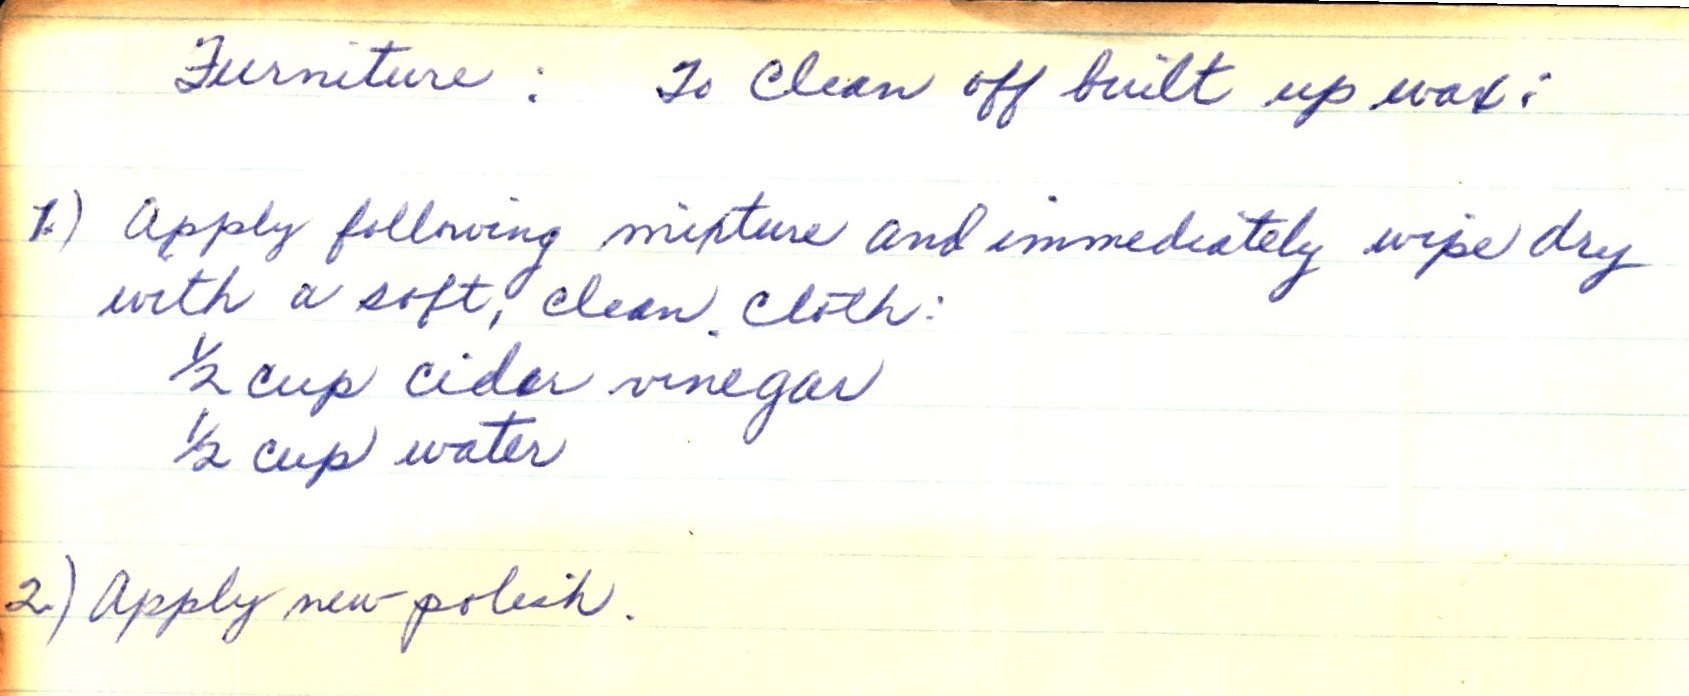 Furniture : To Clean off built up wax:
1.) Apply following mixture and immediately wipe dry
with a soft, clean cloth:
1/2 cup cider vinegar
1/2 cup water
2.) Apply new polish.